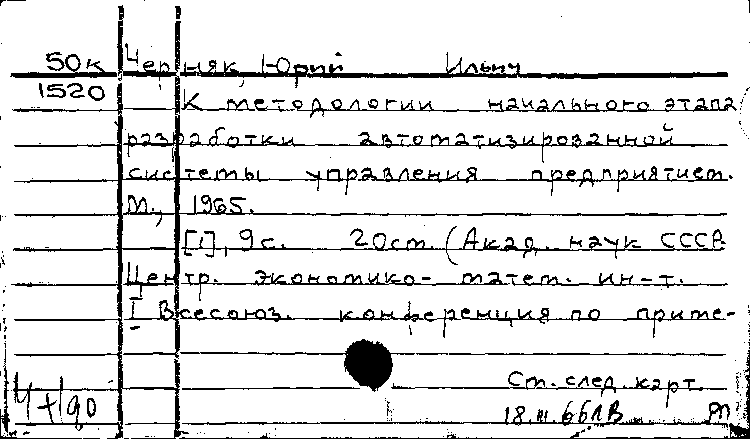 50к Черняк, Юрий Ильич
1520 К методологии начального этапа
разработки автоматизированной
системы управления предприятием.
М., 1965.
[1], 9 с. 20 см. (Акад. наук СССР
Центр. экономико-матем. ин-т.
I Всесоюз. конференция по приме-
См. след. карт.
18.III.66